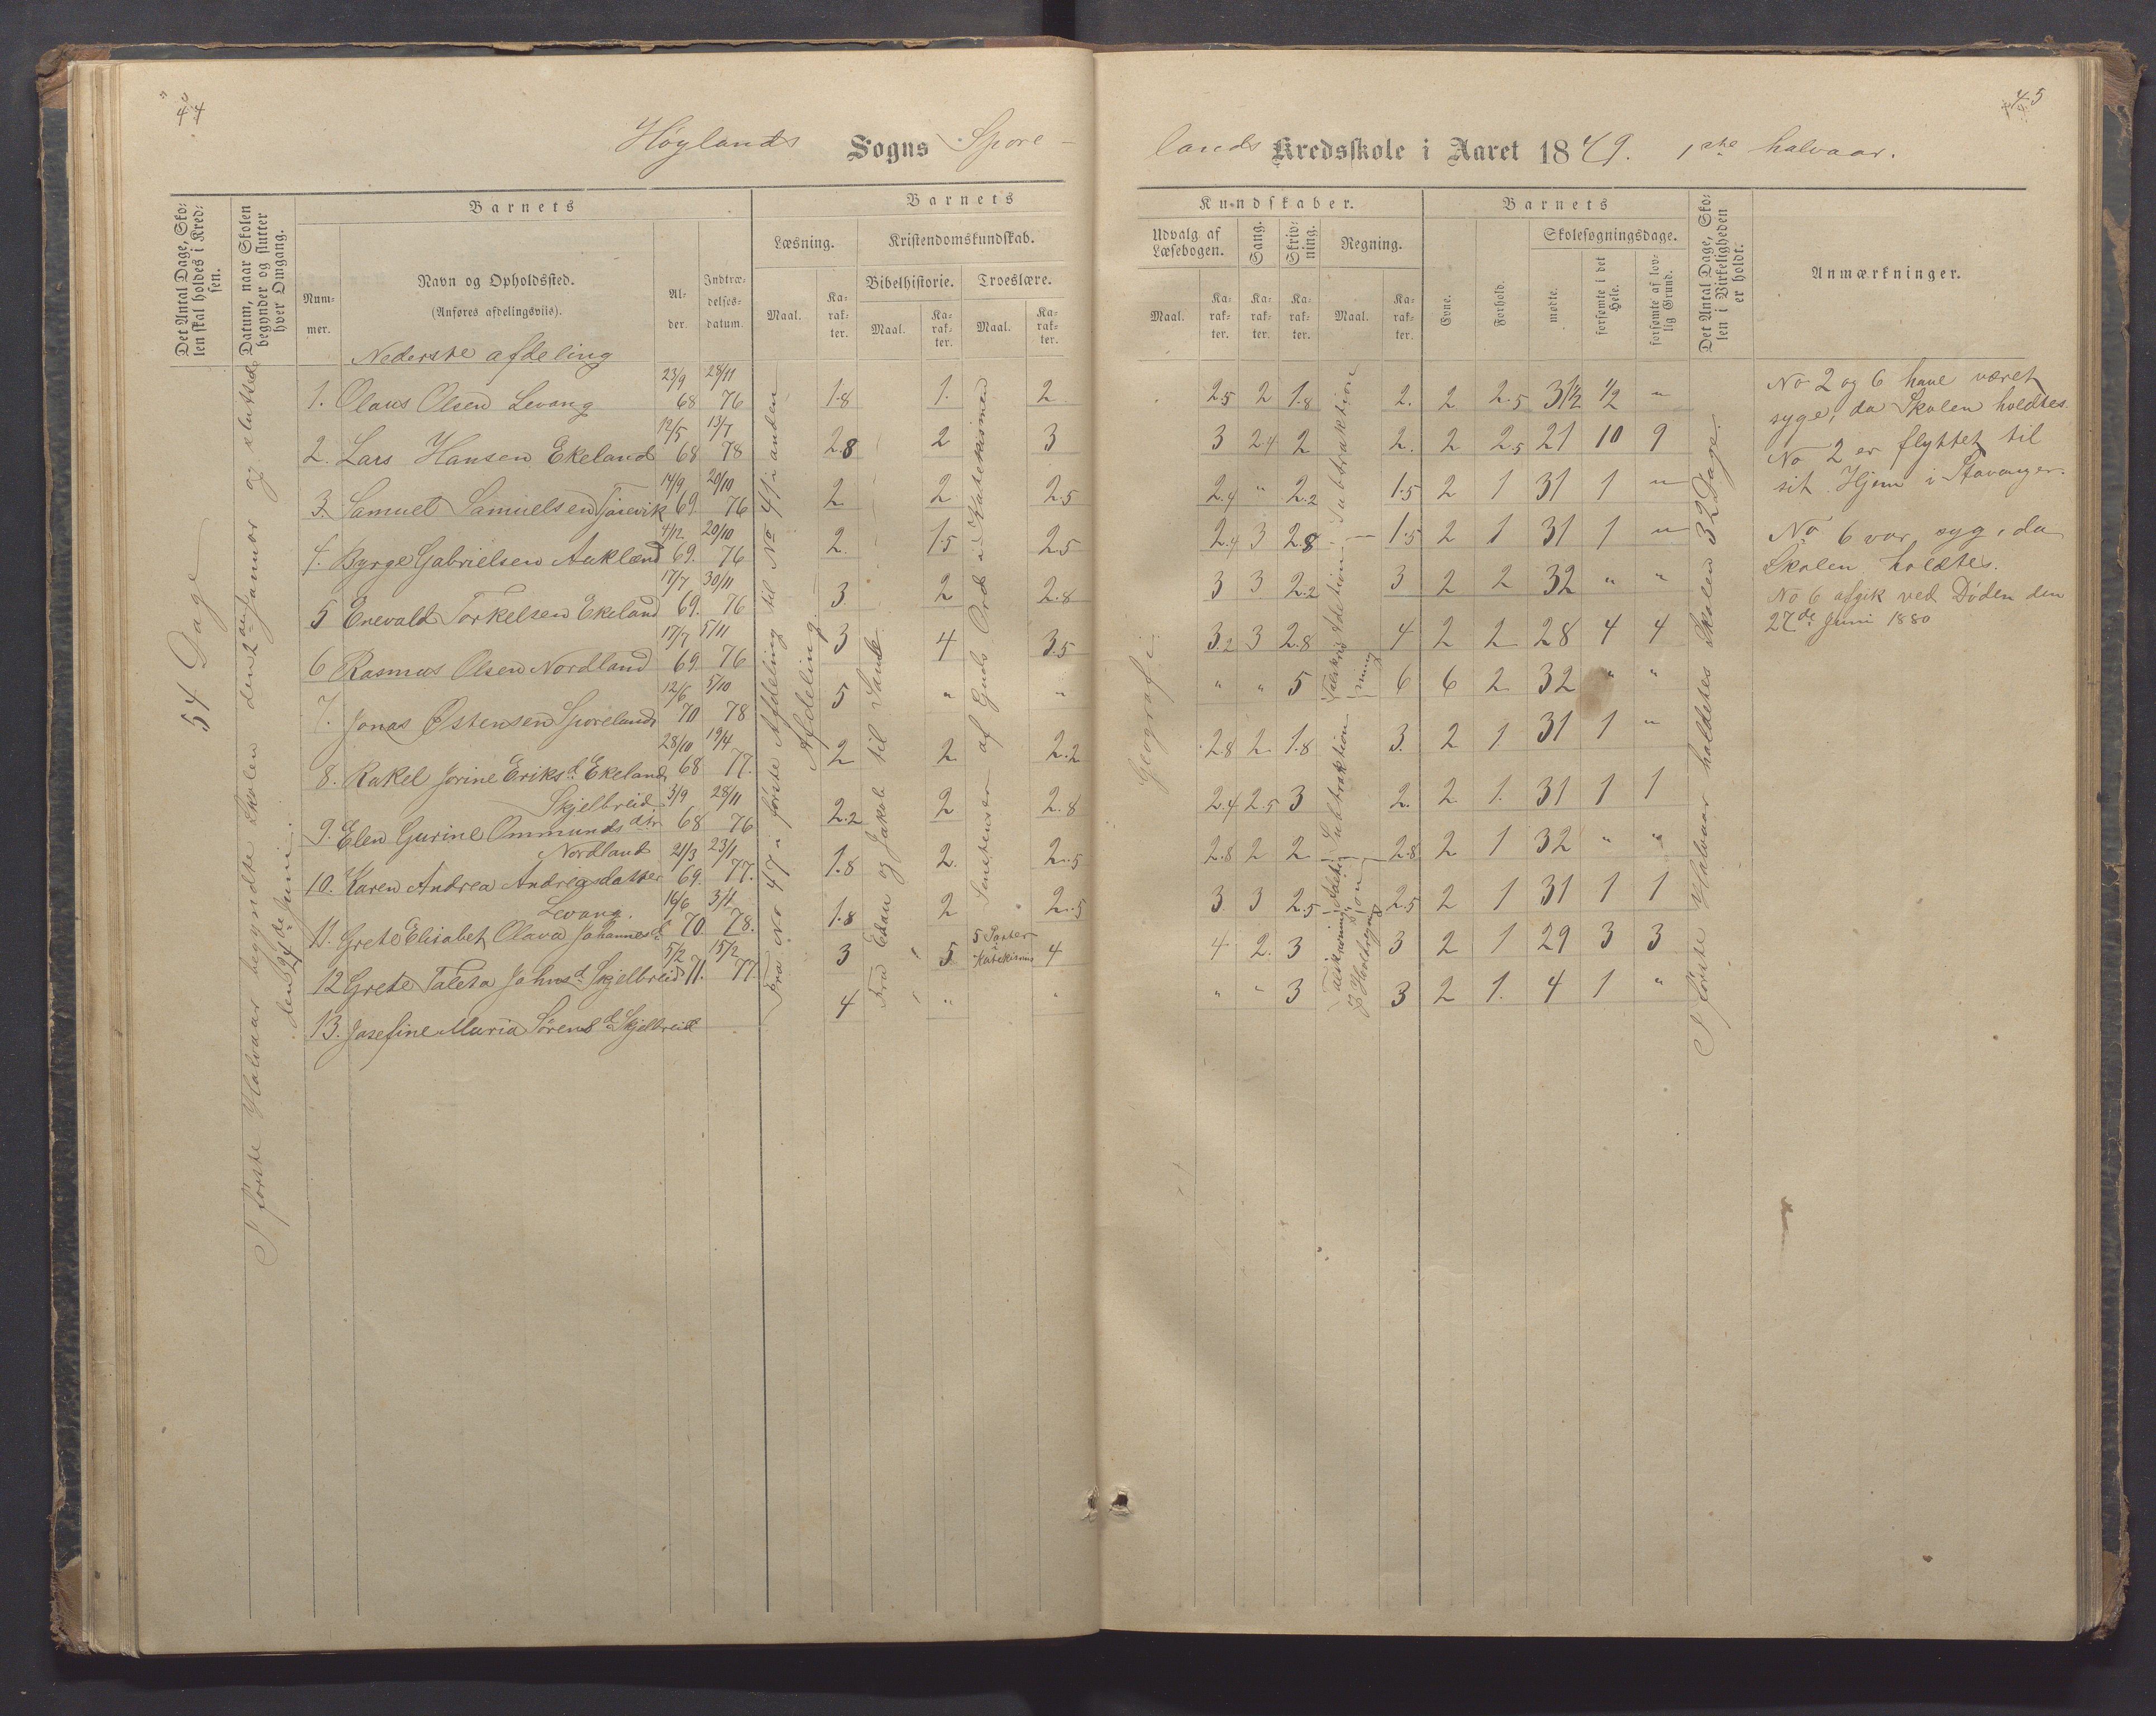 44
Høylands Sogns Spore-
Det Antal Dage, Sko-
len skal holdes i Kred-
sen.
Datum, naar Skolen
begynder og slutter
hver Omgang.
Barnets
Barnets
Num-
mer.
Navn og Opholdssted.
(Anføres afdelingsviis).
Al-
der.
Indtræ-
delses-
datum.
Læsning.
Kristendomskundskab.
Maal.
Ka-
rak-
ter.
Bibelhistorie.
Troeslære.
Maal.
Ka-
rak-
ter.
Maal.
Ka-
rak-
ter.
Nederste afdeling
54 Dage
I første Halvaar begyndte Skolen den 2den Januar og sluttede
den 24de Juni.
Fra No 47 i første Afdeling til No 41 i anden
Afdeling.
Fra Esau og Jakob til Saul.
Sentenser af Guds Ord i Katekismen
1. Olaus Olsen Levang 23/9 68 28/11 76 1.8 1. 2
2. Lars Hansen Ekeland 12/5 68 13/7 78 2.8 2 3
3. Samuel Samuelsen Tjosevik 14/9 69. 20/10 76 2 2 2.5
4. Byrge Gabrielsen Aukland 4/12 69. 20/10 76 2. 1.5 2.5
5 Enevald Torkelsen Ekeland 17/7 69. 30/11 76 3 2 2.8
6 Rasmus Olsen Nordland 17/7 69. 5/11 76 3 4 3.5
7. Jonas Østensen Sporeland 12/6 70 5/10 78 5 " "
8. Rakel Jorine Eriksd. Ekeland 28/10 68 19/4 77. 2 2 2.2
Skjelbreid
9. Elen Gurine Ommundsdtr 3/9 68 28/11 76 2.2 2 2.8
Nordland
10. Karen Andrea Andreasdatter 21/3 69. 23/1 77. 1.8 2. 2.5
Levang.
11. Grete Elisabet Olava Johannesd. 16/6 70. 3/4 78. 1.8 2 2.5
12 Grete Taleta Johnsd. Skjelbreid 5/2 71. 15/2 77 3 5 5 Parter Katekismus 4
13. Josefine Maria Sørensd. Skjelbreid 4 " "
45
lands Kredsskole i Aaret 1879. 1ste halvaar.
Kundskaber.
Barnets
Udvalg af
Læsebogen.
Sang.
Skriv-
ning.
Regning.
Skolesøgningsdage.
Maal.
Ka-
rak-
ter.
Ka-
rak-
ter.
Ka-
rak-
ter.
Maal.
Ka-
rak-
ter.
Evne.
Forhold.
mødte.
forsømte i det
Hele.
forsømte af lov-
lig Grund.
Det Antal Dage, Sko-
len i Virkeligheden
er holdt.
Anmærkninger.
Geografi
Subtraktion
Subtraktion
I første Halvaar holdtes Skolen 32 Dage.
2.5 2 1.8 2. 2 2.5 31½ ½ "
3 2.4 2 2. 2 2.5 21 10 9
2.4 " 2.2 1.5 2 1 31 1 "
2.4 3 2.8 1.5 2 1 31 1 "
3 3 2.2 3 2 2 32 " "
3.2 3 2.8 4 2 2 28 4 4
" " 5 6 6 2 32 " "
2.8 2. 1.8 3. 2 1 31 1 "
2.4 2.5 3 2. 2. 1. 31 1 1
2.8 2 2 2.8 2 1 32 " "
3. 3 2.5 2.5 2 1 31 1 1
4 2. 3 3 2 1 29 3 3
" " 3 3 2 1. 4 1 "
No 2 og 6 have været
syge, da Skolen holdtes.
No 2 er flyttet til
sit Hjem i Stavanger.
No 6 var syg, da
Skolen holdtes.
No 6 afgik ved Døden den
27de Juni 1880